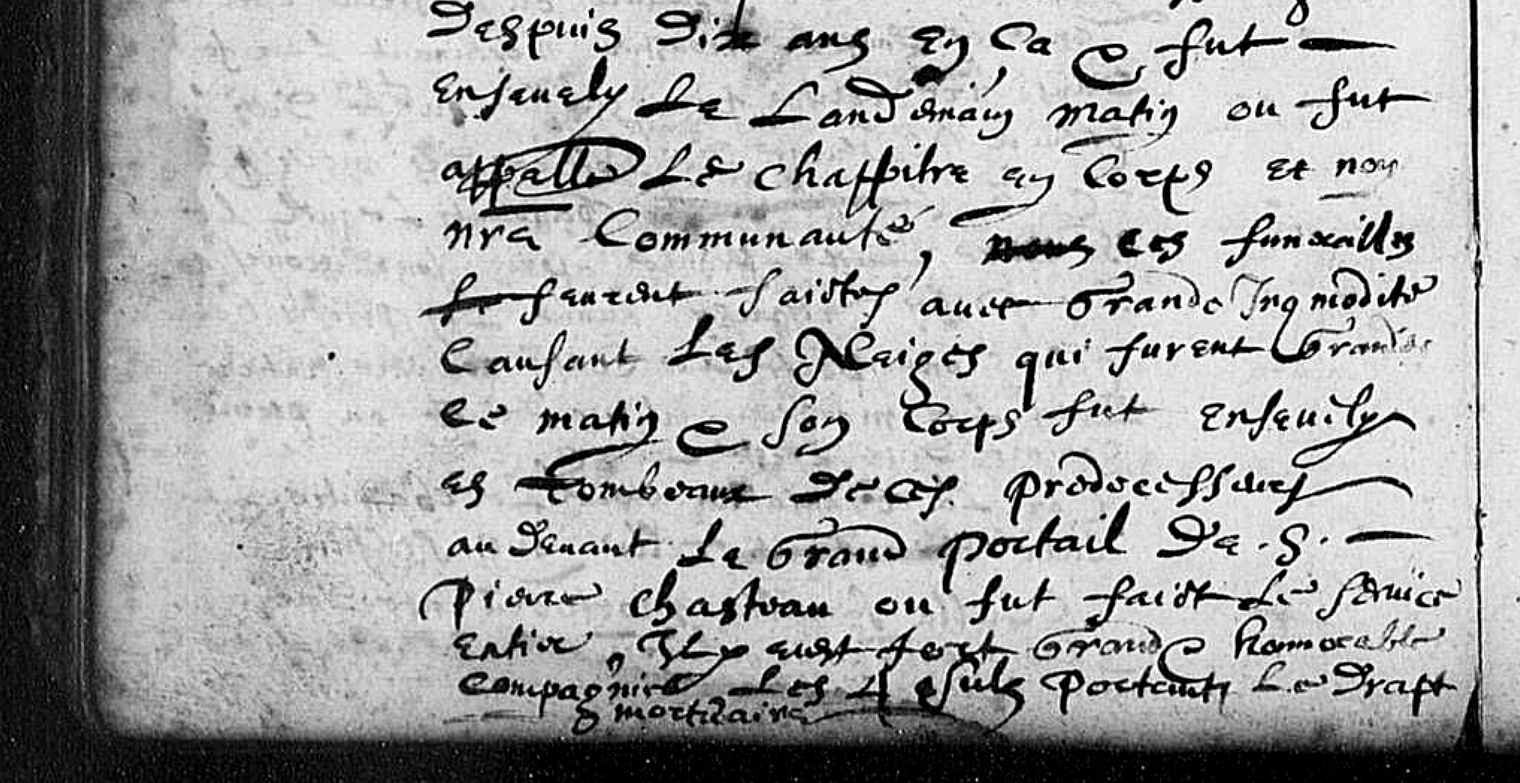 Despuis dix ans en ça & fut
ensevely Le Landemain matin ou fut
appallé Le chappitre en Corps et non
nre Communauté, ces funerailles
feurent faictes avec Grande Inqmodité
Causant Les Neiges qui furent Grandes
Ce matin & son Corps fut ensevely
es tombeaux de ces predecesseurs
au devant Le Grand portail De .S.
Pierre chasteau ou fut faict Le service
entier, Il y eust fort Grand & honnorable
Compagnie Les 4 Portants Le Drapt
mortuaire